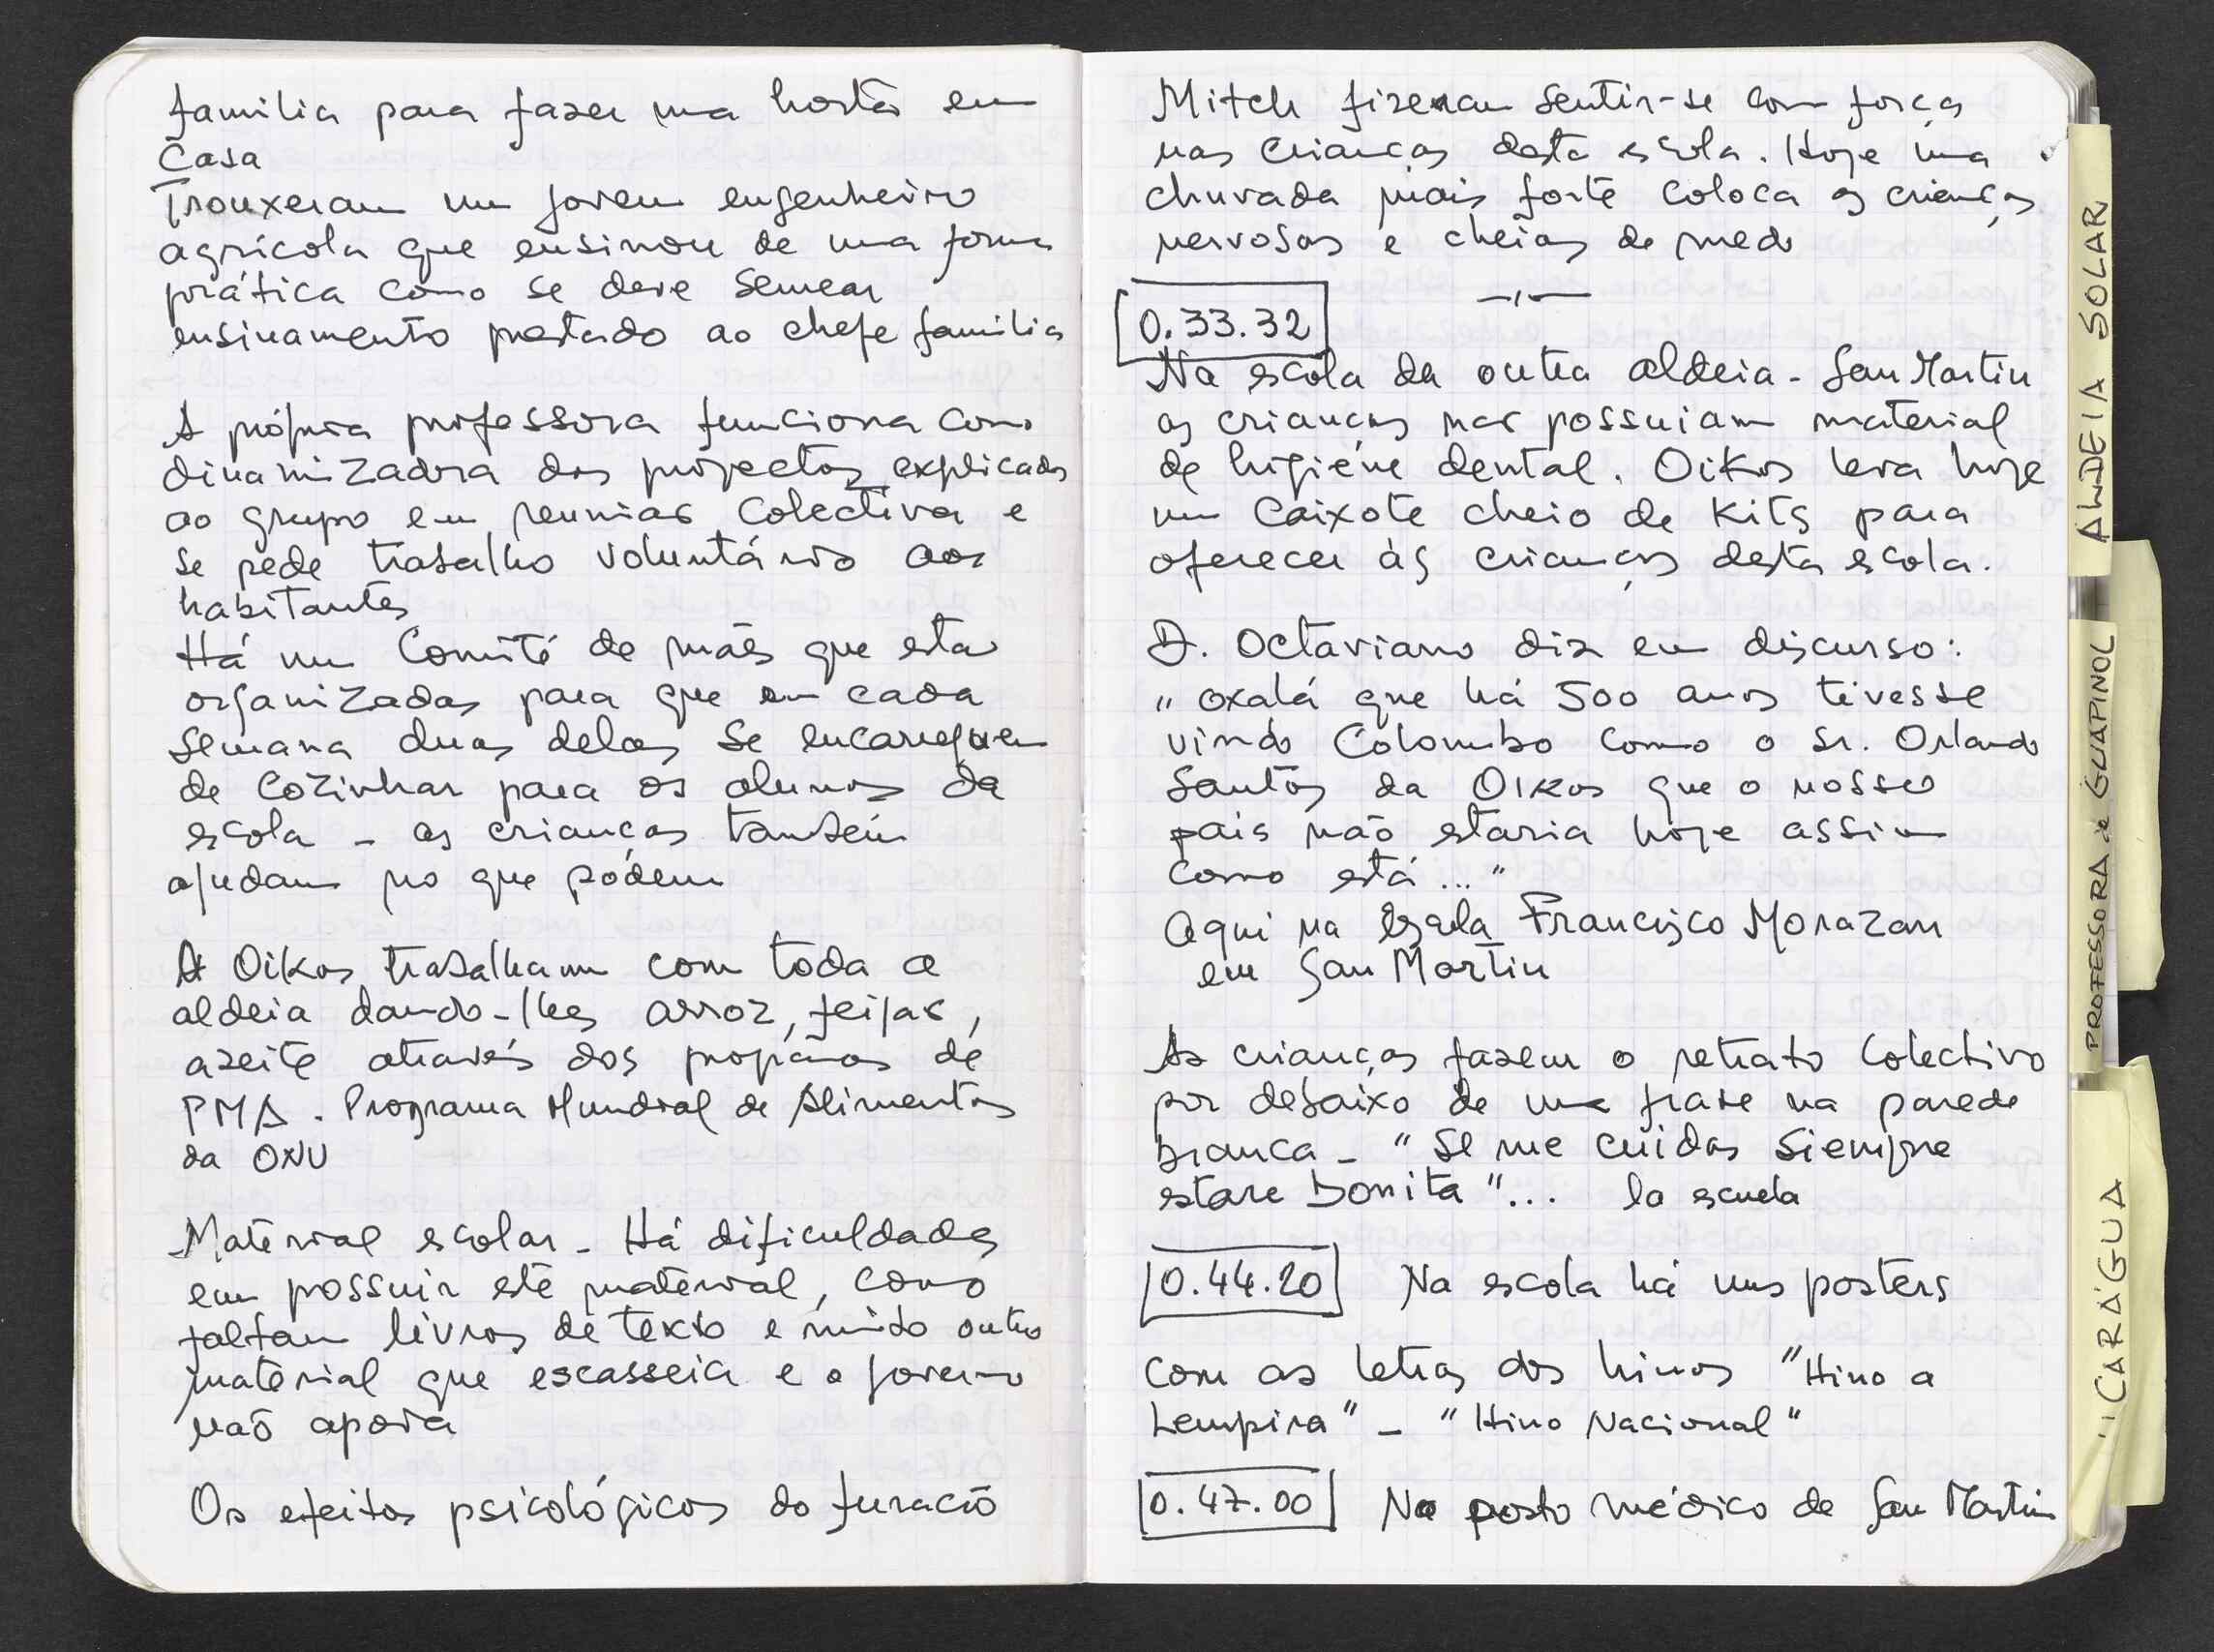 familia para fazer uma horta em
casa
Trouxeram um jovem engenheiro
agrícola que ensinou de uma forma
prática como se deve semear
ensinamento prestado ao chefe familia
A própria professora funciona como
dinamizadora dos projectos explicados
ao grupo em reunião colectiva e
se pede trabalho voluntário aos
habitantes
Há um Comité de mães que estão
organizadas para que em cada
semana duas delas se encarreguem
de cozinhar para os alunos da
escola - as crianças também
ajudam no que pódem
A Oikos trabalham com toda a
aldeia dando-lhes arroz, feijão,
azeite através dos programas de
PMA. Programa Mundial de Alimentos
da ONU
Material escolar - Há dificuldades
em possuir este material, como
faltam livros de texto e muito outro
material que escasseia e o governo
não apoia
Os efeitos psicológicos do furacão
Mitch fizeram sentir-se com força
nas crianças desta escola. Hoje uma
chuvada mais forte coloca as crianças
nervosas e cheias de medo
0.33.32
Na escola da outra aldeia - San Martin
as crianças não possuiam material
de higiéne dental. Oikos leva hoje
um caixote cheio de kits para
oferecer às crianças desta escola.
D. Octaviano diz em discurso:
"oxalá que há 500 anos tivesse
vindo Colombo como o Sr. Orlando
Santos da Oikos que o nosso
pais não estaria hoje assim
como está..."
Aqui na Escola Francisco Morazan
em San Martin
As crianças fazem o retrato colectivo
por debaixo de uma frase na parede
branca - "Se me cuidas siempre
estare bonita"... la escuela
0.44.20 Na escola há uns posters
com as letras dos hinos "Hino a
Lempira" - "Hino Nacional"
0.47.00 No posto médico de San Martin
ALDEIA SOLAR
PROFESSORA de GUAPINOL
"CARÁGUA